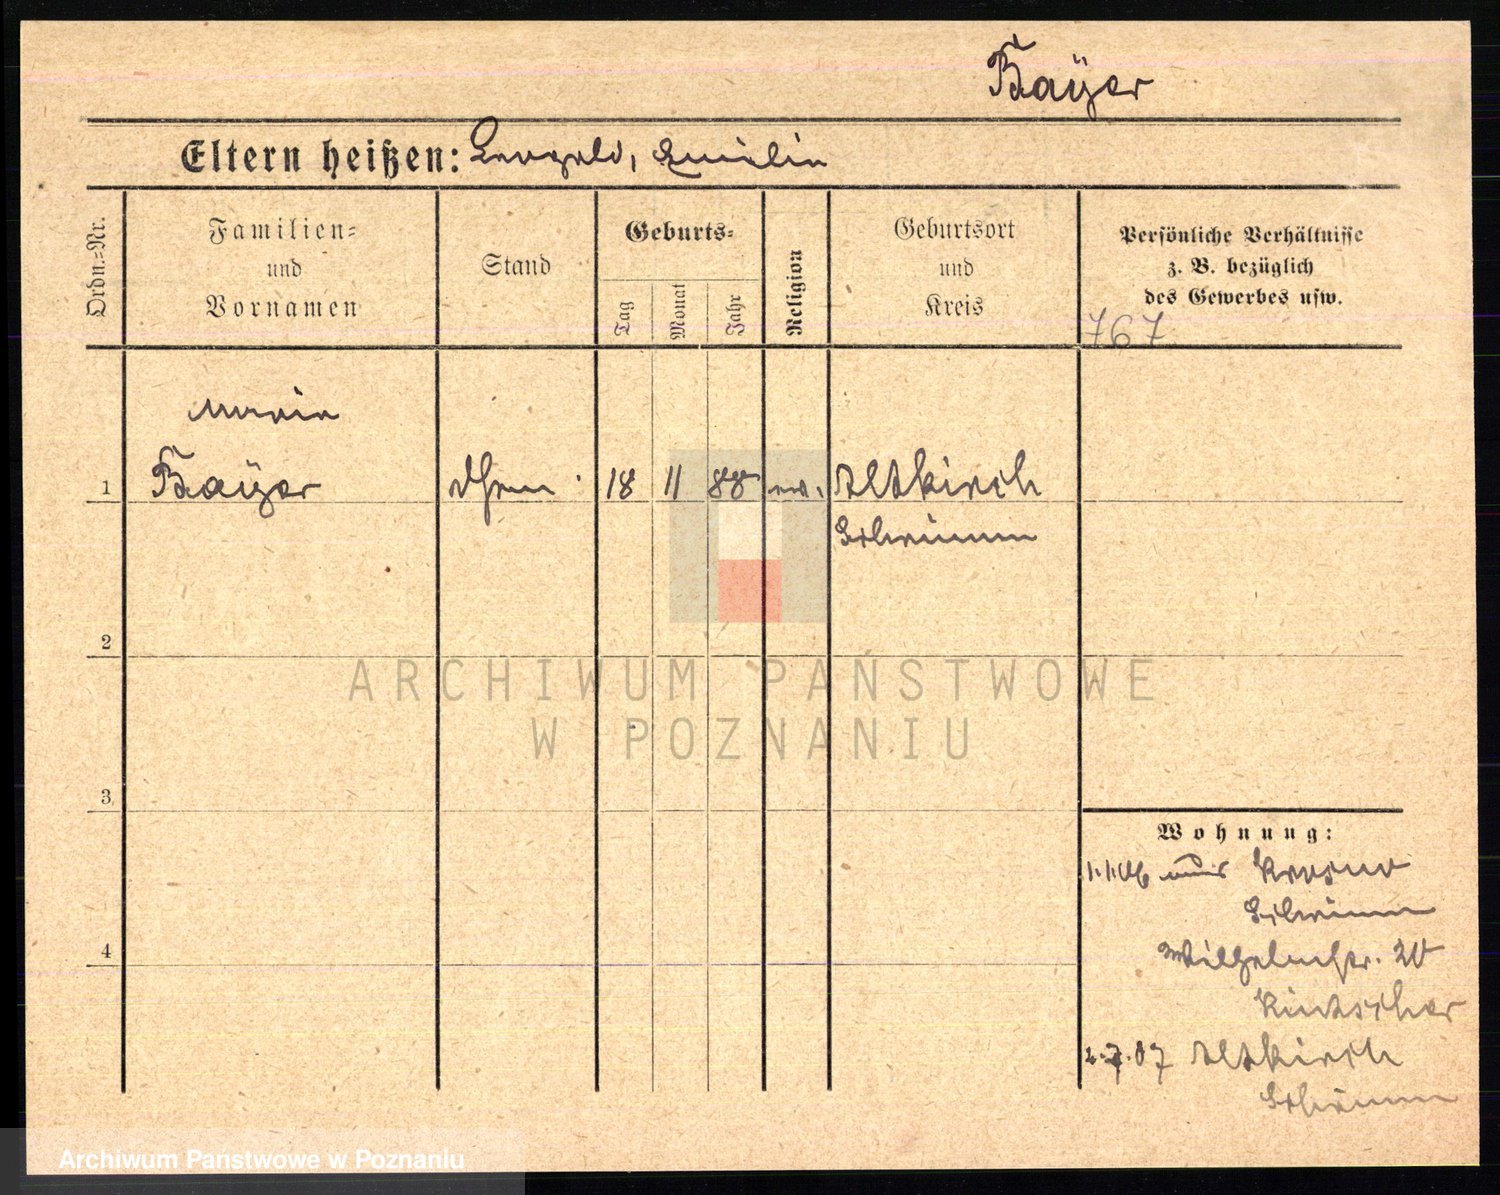 Bayer
Eltern heißen: Leopold, Emilie
Ordn.=Nr.
Familien=
und
Vornamen
Stand
Geburts=
Tag
Monat
Jahr
Religion
Geburtsort
und
Kreis
Persönliche Verhältnisse
z. B. bezüglich
des Gewerbes usw.
767
Maria
1 Bayer 18 11 88 ev. Altkirch
Schrimm
2
3
4
Wohnung:
1.1.06 aus Krosno
Schrimm
Wilhelmstr. 20
2.7.07 Altkirch
Schrimm
ARCHIWUM PAŃSTWOWE
W POZNANIU
Archiwum Państwowe w Poznaniu